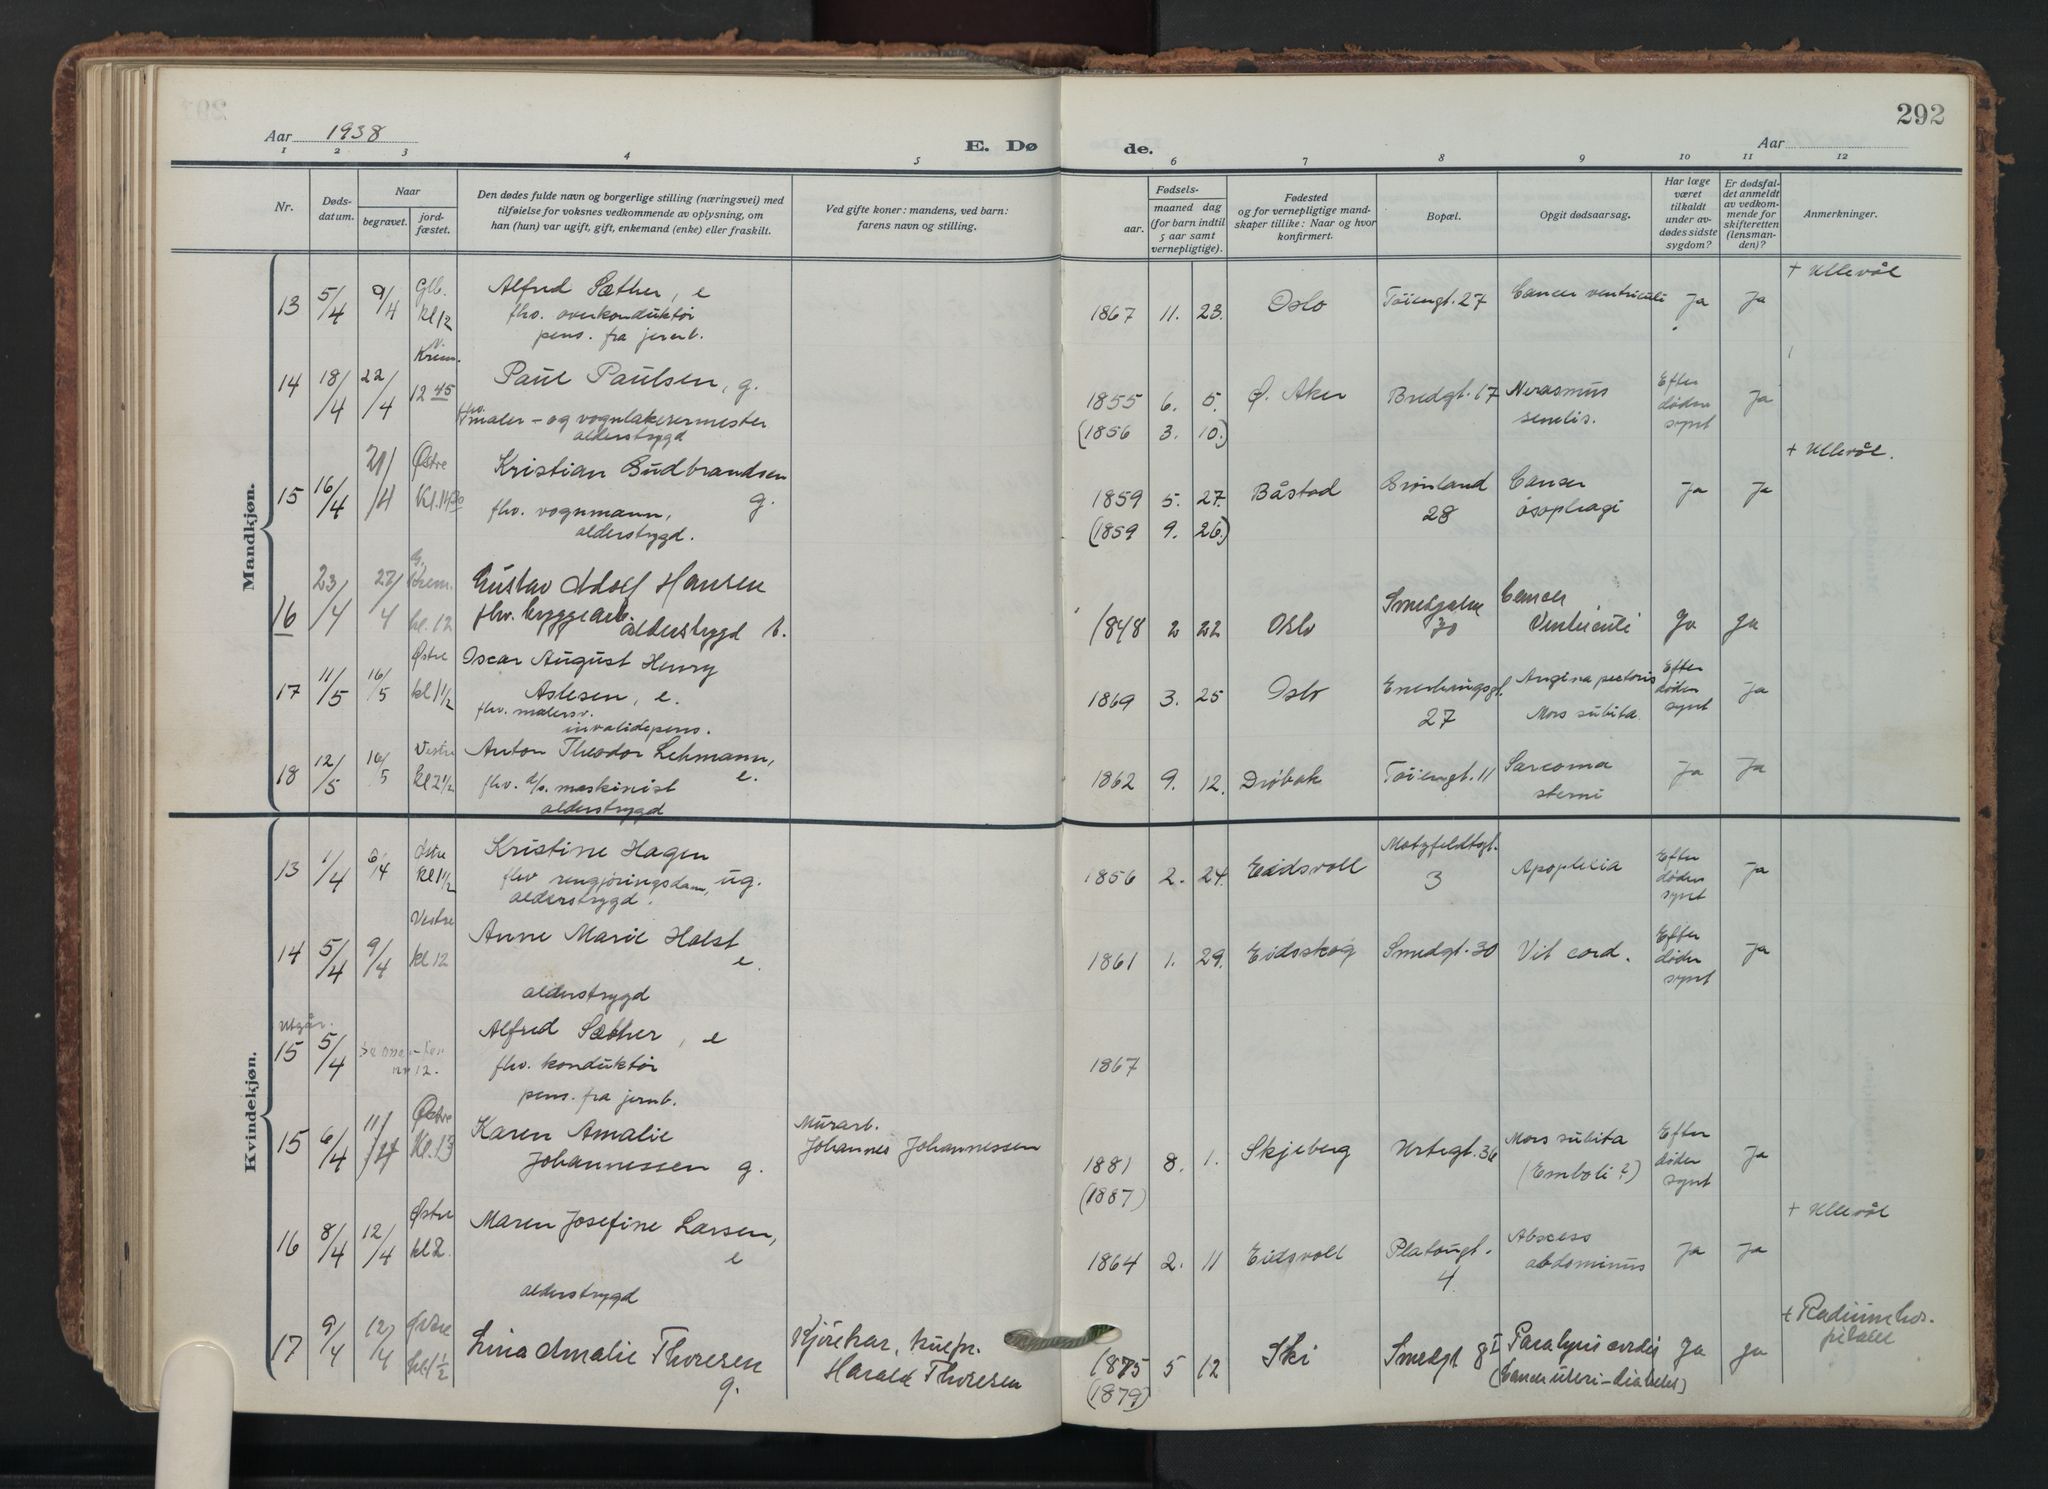 292
Aar 1938
E. Dø de.
Aar
1 2 3 4 5 6 7 8 9 10 11 12
Nr.
Døds-
datum.
Naar
begravet.
jord-
fæstet.
Den dødes fulde navn og borgerlige stilling (næringsvei) med
tilføielse for voksnes vedkommende av oplysning, om
han (hun) var ugift, gift, enkemand (enke) eller fraskilt.
Ved gifte koner: mandens, ved barn:
farens navn og stilling.
Fødsels-
aar.
maaned dag
(for barn indtil
5 aar samt
vernepligtige).
Fødested
og for vernepligtige mand-
skaper tillike: Naar og hvor
konfirmert.
Bopæl.
Opgit dødsaarsag.
Har læge
været
tilkaldt
under av-
dødes sidste
sygdom?
Er dødsfal-
det anmeldt
av vedkom-
mende for
skifteretten
(lensman-
den)?
Anmerkninger.
Mandkjøn.
13 5/4 9/4 Glb. kl 12 Alfred Sæther, e 1867 11. 23. Oslo Tøiengt. 27 Cancer ventriculi Ja Ja + Ullevål
fhv. overkonduktør
pens. fra jernb.
14 18/4 22/4 V. Krem. 12 45 Paul Paulsen, g. 1855 6. 5. Ø. Aker Bredgt. 17 Marasmus senilis. Efter døden synt Ja
fhv. maler- og vognlakerermester (1856 3. 10.)
alderstrygd
15 16/4 21/4 Østre Kl. 14 30 Kristian Gudbrandsen g. 1859 5. 27. Båstad Grønland 28 Cancer øsophagi Ja Ja + Ullevål.
fhv. vognmann, (1859 9. 26.)
alderstrygd.
16 23/4 27/4 G. Krem. kl. 12 Gustav Adolf Hansen 1848 2 22 Oslo 30 Cancer Ventriculi Ja Ja
fhv. bryggearb. alderstrygd
17 11/5 16/5 Østre kl 1 1/2 Oscar August Henry 1869 3. 25 Oslo 27 Angina pectoris Efter døden synt Ja
Aslesen, e. Mors subita.
fhv. malersv.
invalidepens.
18 12/5 16/5 Vestre kl 2 1/2 Anton Theodor Lehmann, e. 1862 9. 12. Drøbak Tøiengt. 11 Sarcoma sterni Ja Ja
fhv. d/s. maskinist
alderstrygd
Kvindekjøn.
13 1/4 6/4 Østre kl 1 1/2 Kristine Hagen 1856 2. 24. Eidsvoll Motzfeldtsgt. 3 Apoplexia Efter døden synt Ja
fhv rengjøringsdam, ug.
alderstrygd.
14 5/4 9/4 Vestre kl 12 Anne Marie Holst e. 1861 1. 29. Eidsskog Smedgt. 30 Vit cord. Efter døden synt Ja
alderstrygd
Utgår.
15 5/4 Alfred Sæther, e 1867
fhv. konduktør
pens. fra jernb.
15 6/4 11/4 Østre Kl. 13 Karen Amalie Murarb. 1881 8. 1. Skjeberg Urtegt. 36 Mors subita Efter døden synt Ja
Johannessen g. Johannes Johannessen (1887) (Emboli?)
16 8/4 12/4 Østre kl 2. Maren Josefine Larsen, e 1864 2. 11 Eidsvoll Platougt. 4 Abscess abdominus Ja Ja + Ullevål
alderstrygd
17 9/4 12/4 Østre kl 1 1/2 Lina Amalie Thoresen g. Kjørekar, 1875 5 12 Ski Smedgt 8 I Paralysis cordis Ja Ja + Radiumhos-
Harald Thoresen (1879) (Cancer uteri - diabetes) pitalet